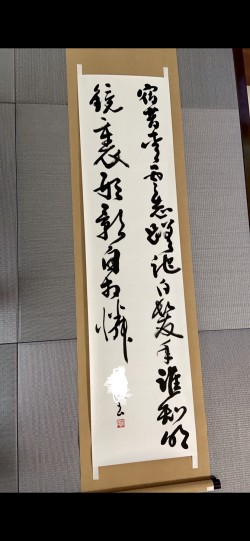 宿昔青雲志蹉跎白髮年誰知明
鏡裏形影自相憐